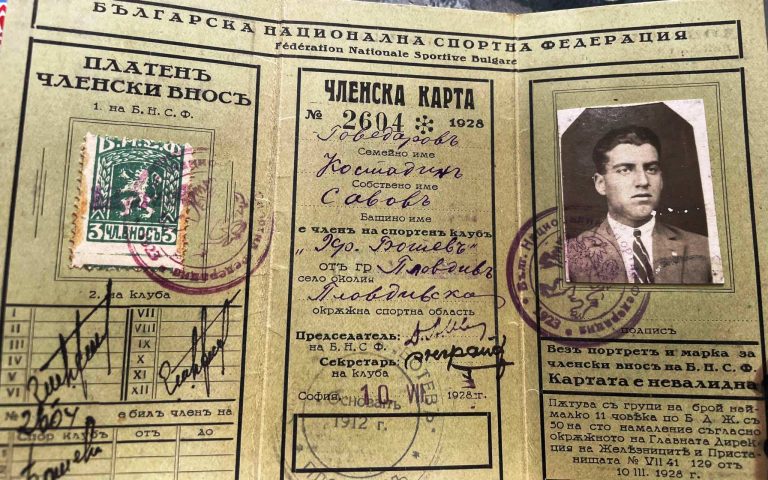 БЪЛГАРСКА НАЦИОНАЛНА СПОРТНА ФЕДЕРАЦИЯ
Fédération Nationale Sportive Bulgare
ПЛАТЕНЪ
ЧЛЕНСКИ ВНОСЪ
1. на Б. Н. С. Ф.
3 ЧЛ.ВНОСЪ 3
2. на клуба
I VII
II VIII
III IX
IV X
V XI
VI XII
№ 2604 е билъ членъ на
Спор клубъ отъ до
ЧЛЕНСКА КАРТА
№ 2604 1928
Говедаровъ
Семейно име
Костадинъ
Собствено име
Савовъ
Бащино име
е членъ на спортенъ клубъ
отъ гр Пловдивъ
село околия
Пловдивска
окржжна спортна область
Председатель:
на Б. Н. С. Ф.
Секретарь:
на клуба
София, 10 VII 1928 г.
Основанъ
1912 г.
подпись
Безъ портретъ и марка за
членски вносъ на Б. Н. С. Ф.
Картата е невалидна
Пжтува съ групи на брой най-
малко 11 човѣка по Б. Д. Ж. съ
50 на сто намаление съгласно
окржжното на Главната Дирек-
ция на Желѣзницитѣ и Приста-
нищата № VII 41 129 отъ
10 III. 1928 г.